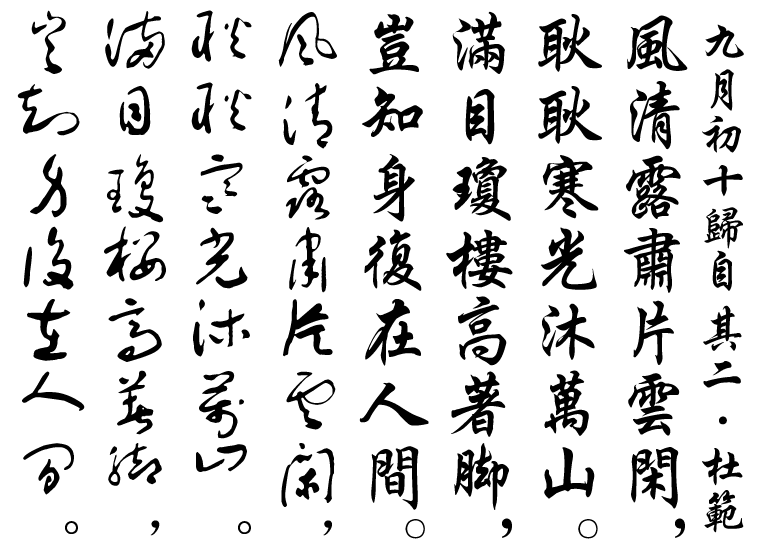 九月初十歸自 其二·杜範
風清露肅片雲閑，
耿耿寒光沐萬山。
滿目瓊樓高著腳，
豈知身復在人間。
風清露肅片雲閑，
耿耿寒光沐萬山。
滿目瓊樓高著腳，
豈知身復在人間。